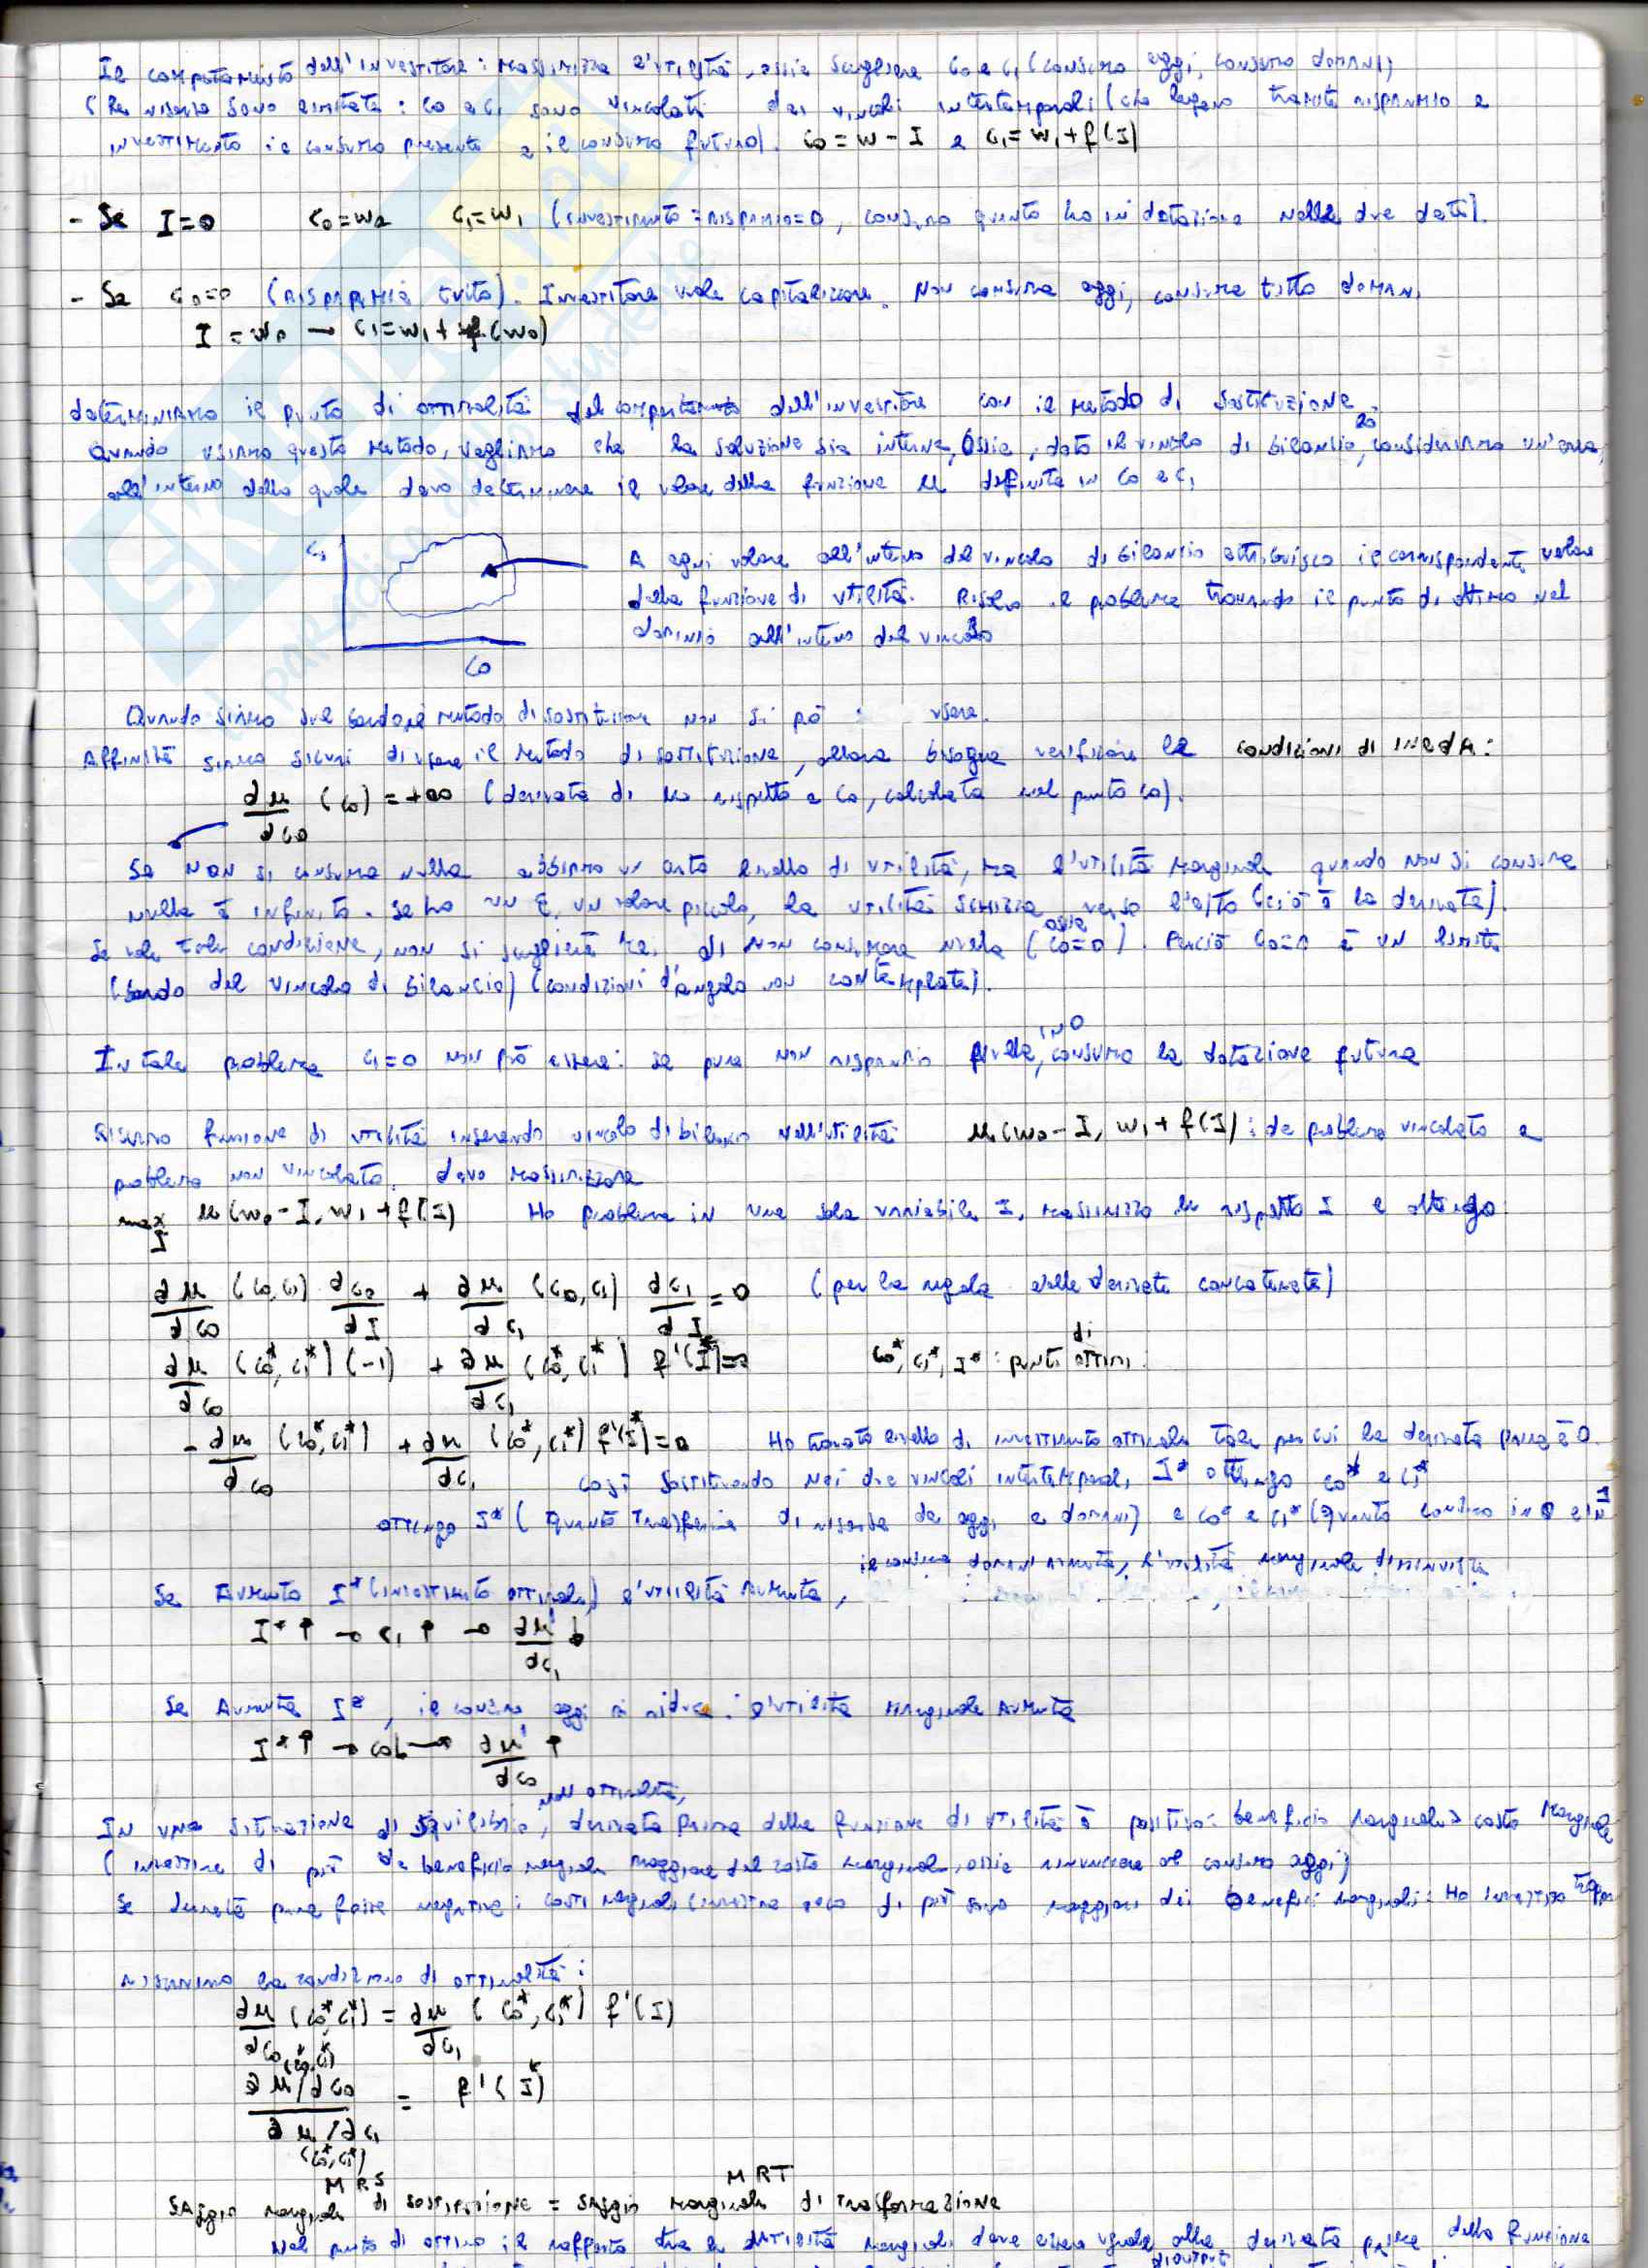 Il comportamento dell'investitore: massimizza l'utilità, ossia scegliere c0 e c1 (consumo oggi, consumo domani)
(le risorse sono limitate: c0 e c1 sono vincolati dai vincoli intertemporali (che legano tramite risparmio e
investimento il consumo presente e il consumo futuro). c0 = w - I e c1 = w1 + f(I)
- Se I=0 c0=w0 c1=w1 (investimento=risparmio=0, consumo quanto ho in dotazione nelle due date).
- Se c0=0 (risparmia tutto). Investitore vuole capitalizzare. Non consuma oggi, consuma tutto domani
I = w0 → c1=w1+f(w0)
determiniamo il punto di ottimalità del comportamento dell'investitore con il metodo di sostituzione
Quando usiamo questo metodo, vogliamo che la soluzione sia interna, ossia, dato il vincolo di bilancio, consideriamo un'area,
all'interno della quale devo determinare il valore della funzione u definita in c0 e c1
c1
A ogni valore all'interno del vincolo di bilancio attribuisco il corrispondente valore
della funzione di utilità. Risolvo il problema trovando il punto di ottimo nel
dominio all'interno del vincolo
c0
Quando siamo sul bordo il metodo di sostituzione non si può usare.
Affinché siamo sicuri di usare il metodo di sostituzione, allora bisogna verificare le condizioni di INADA:
∂u/∂c0 (c0) = +∞ (derivata di u rispetto a c0, calcolata nel punto c0).
Se non si consuma nulla abbiamo un certo livello di utilità, ma l'utilità marginale quando non si consuma
nulla è infinita. Se ho un ε, un valore piccolo, la utilità schizza verso l'alto (ciò è la derivata).
Se vale tale condizione, non si sceglierà mai di non consumare nulla (ossia c0=0). Perciò c0=0 è un limite
(bordo del vincolo di bilancio) (condizioni d'angolo non contemplate).
In tale problema c1=0 non può essere: se pure non risparmio nulla in 0, consumo la dotazione futura
Riscrivo funzione di utilità inserendo vincolo di bilancio nell'utilità u(w0-I, w1+f(I)): da problema vincolato a
problema non vincolato. devo massimizzare
max I u(w0-I, w1+f(I)) Ho problema in una sola variabile I, massimizzo u rispetto I e ottengo:
∂u/∂c0 (c0,c1) ∂c0/∂I + ∂u/∂c1 (c0,c1) ∂c1/∂I = 0 (per la regola delle derivate concatenate)
∂u/∂c0 (c0*,c1*) (-1) + ∂u/∂c1 (c0*,c1*) f'(I*)=0 c0*, c1*, I*: punti di ottimo.
-∂u/∂c0 (c0*,c1*) + ∂u/∂c1 (c0*,c1*) f'(I*)=0 Ho trovato livello di investimento ottimale tale per cui la derivata prima è 0.
così sostituendo nei due vincoli intertemporali I* ottengo c0* e c1*
ottengo I* (quanto trasferire di risorse da oggi a domani) e c0* e c1* (quanto consumo in 0 e in 1
il consumo domani aumenta, l'utilità marginale diminuisce
Se aumenta I* (investimento ottimale) l'utilità aumenta,
I*↑ → c1↑ → ∂u/∂c1 ↓
Se aumenta I*, il consumo oggi si riduce: l'utilità marginale aumenta
I*↑ → c0↓ → ∂u/∂c0 ↑
In una situazione di equilibrio, non ottimalità, derivata prima della funzione di utilità è positiva: beneficio marginale > costo marginale
(investire di più dà beneficio marginale maggiore del costo marginale, ossia rinunciare al consumo oggi)
Se derivata prima fosse negativa: costi marginali (investire di più sono maggiori dei benefici marginali: Ho investito troppo
Riscriviamo la condizione di ottimalità:
∂u/∂c0 (c0*,c1*) = ∂u/∂c1 (c0*,c1*) f'(I)
∂u/∂c0 (c0*,c1*) / ∂u/∂c1 (c0*,c1*) = f'(I*)
MRS MRT
Saggio marginale di sostituzione = saggio marginale di trasformazione
Nel punto di ottimo il rapporto tra le utilità marginali deve essere uguale alla derivata prima della funzione
di output